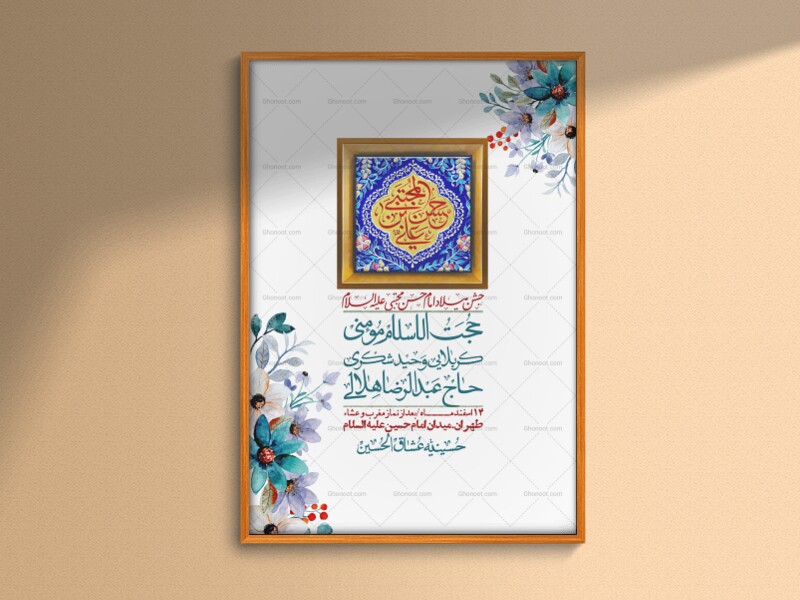 حسن بن علی المجتبی
جشن میلاد امام حسن مجتبی علیه السلام
حجت الاسلام مومنی
کربلایی وحید شکری
حاج عبدالرضا هلالی
۱۴ اسفند مـاه / بعد از نماز مغرب و عشاء
طهران، میدان امام حسین علیه السلام
حسینیه عشاق الحسین
Ghonoot.com